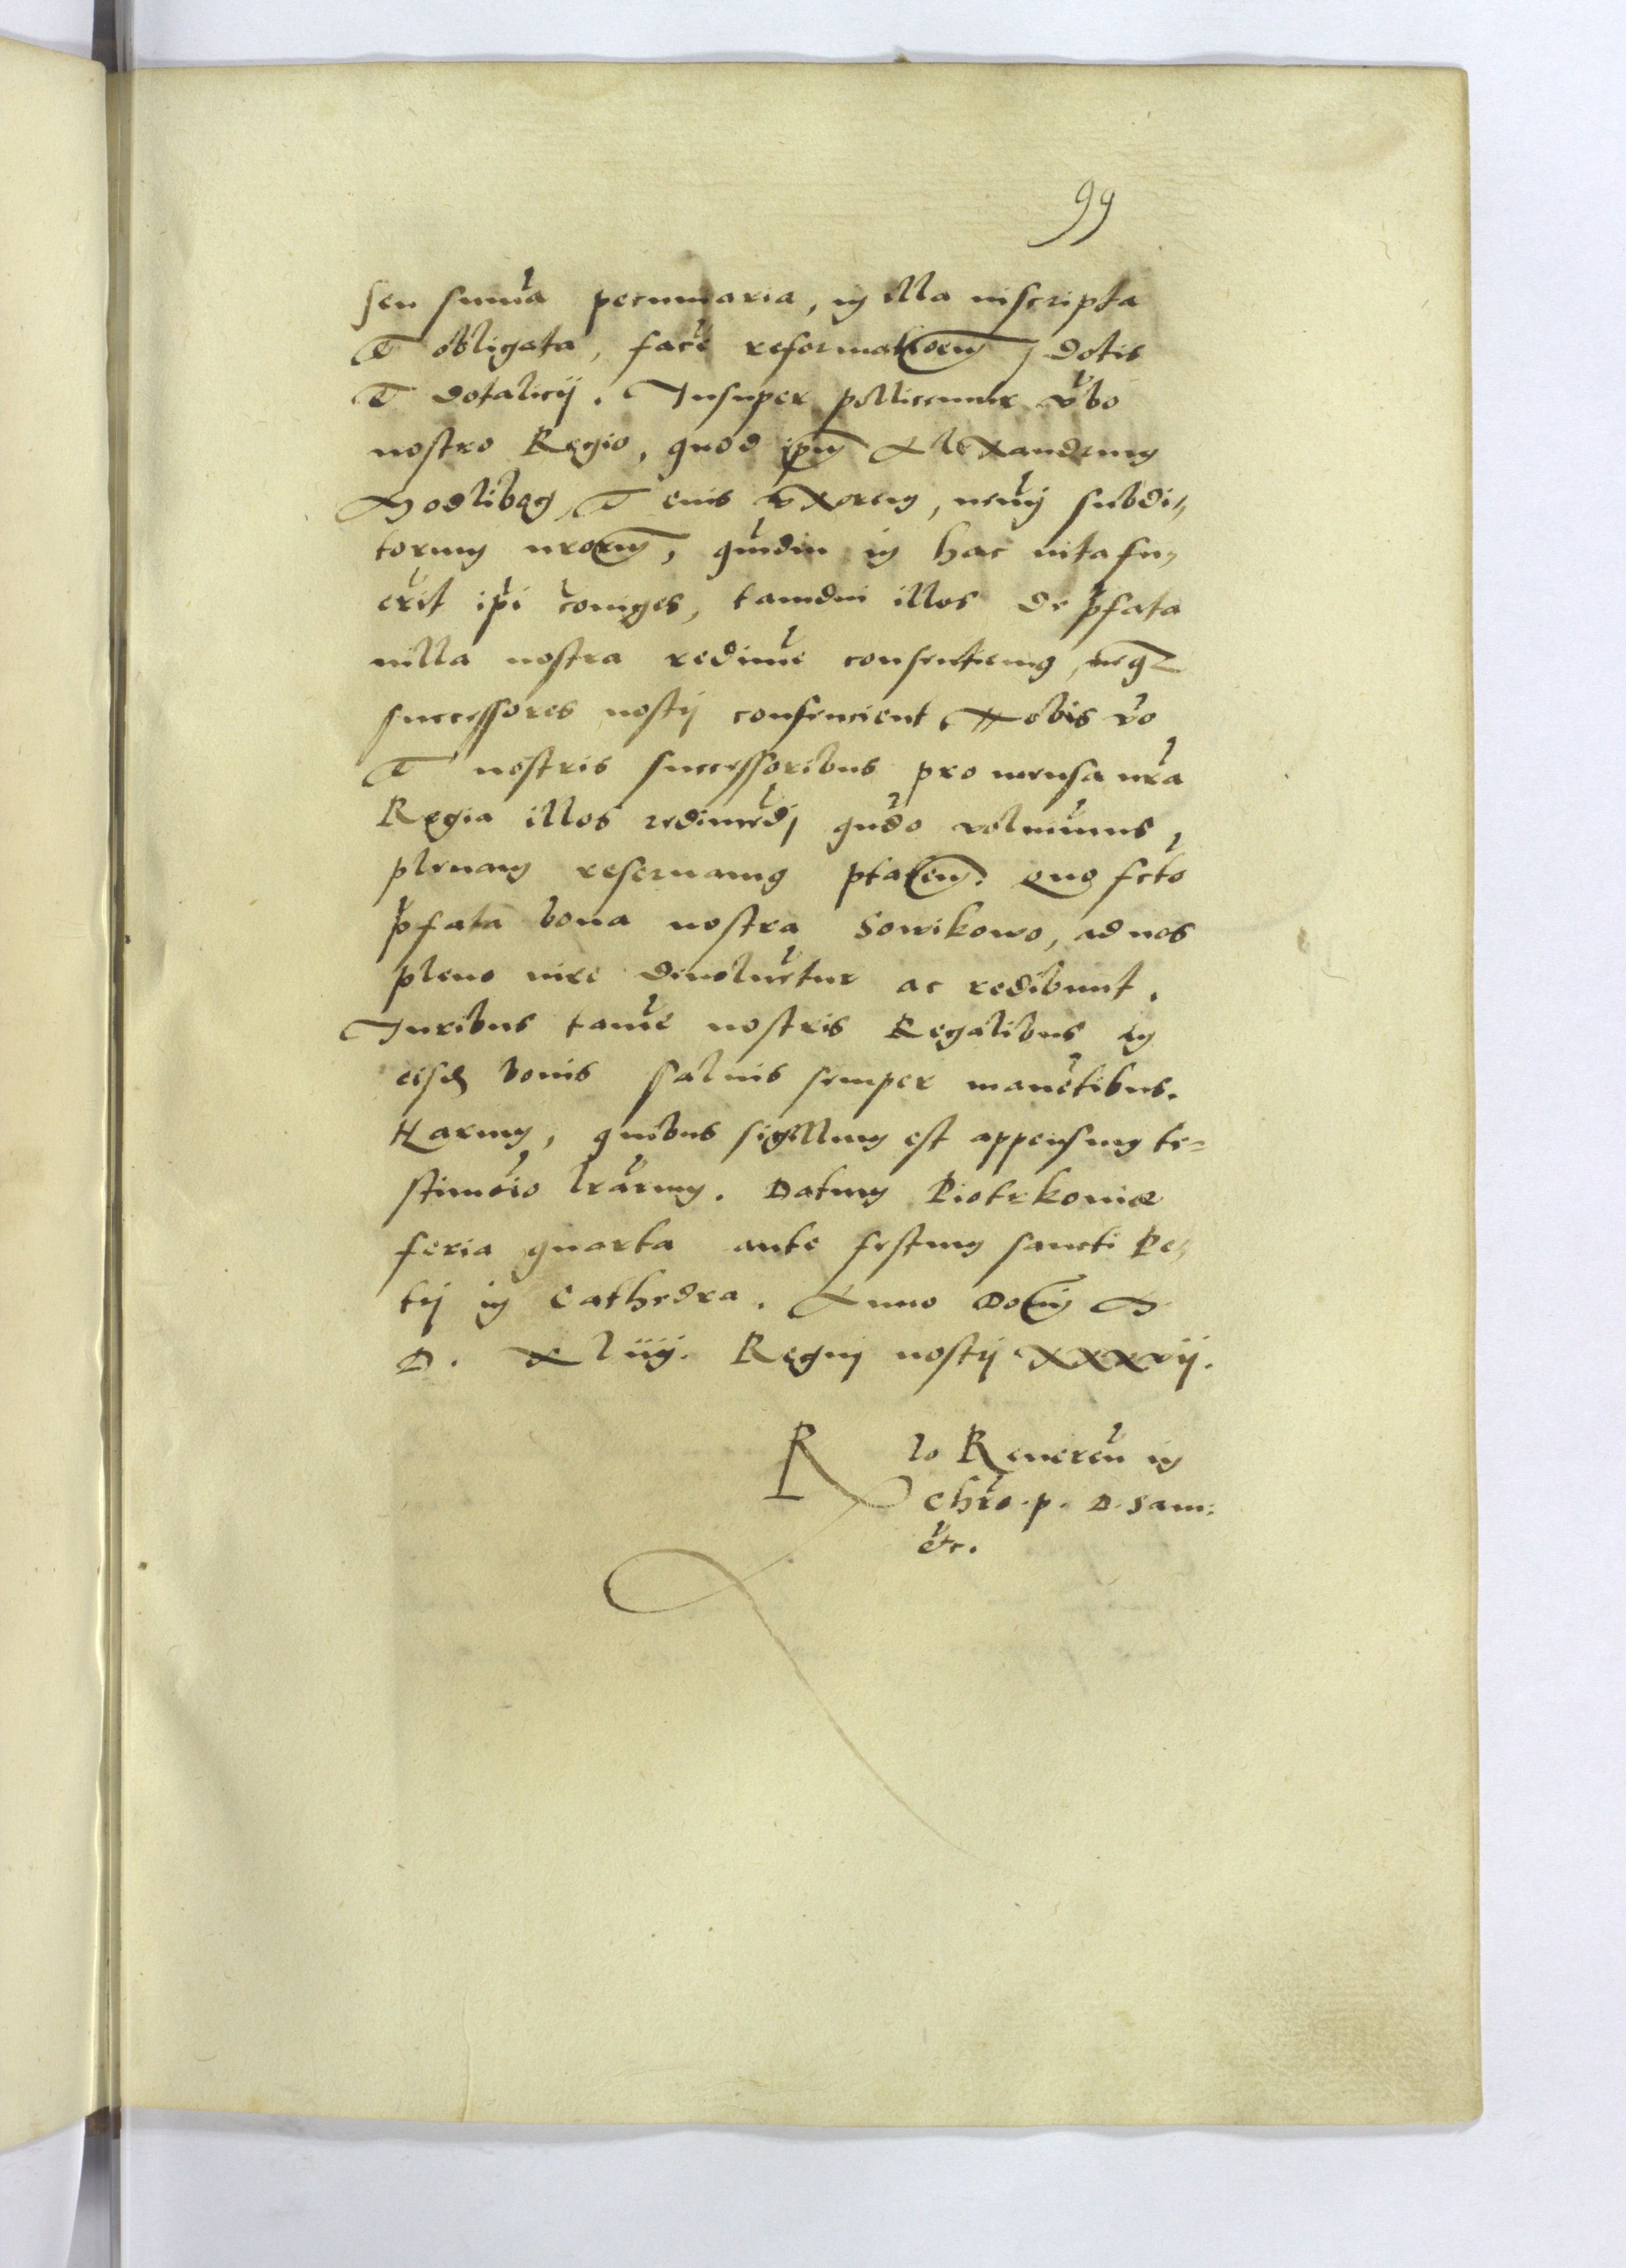 99
seu summa pecuniaria, in illa inscripta
et obligata, face reformatioem dotis
et dotalicij. Insuper pollicemur vbo
nostro Regio, quod ipm Alexandrum
Modlibog et eius vxorem, neminj subdi„
torum nrorum, qmdiu in hac vita fu„
erit ipi coniges, tamdiu illos de pfata
villa nostra redime consentiemus, neqz
successores nostrj consencient. Nobis vo
et nostris successoribus pro mensa nra
Regia illos redimedj qudo volumus,
plenam reseruamus ptatem. Quo fcto
pfata bona nostra Sowikowo, ad nos
pleno iure deuoluetur ac redibunt.
Iuribus tame nostris Regalibus in
eisd bonis saluis semper manetibus.
Harum, quibus sigillum est appensum te=
stimoio lrarum. Datum Piotrkouiæ
feria quarta ante festum sancti Pe„
trj in Cathedra. Anno Domi M
D. xliiij. Regnj nostrj xxxvij.
R lo Reueren in
Chro. p. D. Sam:
etc.